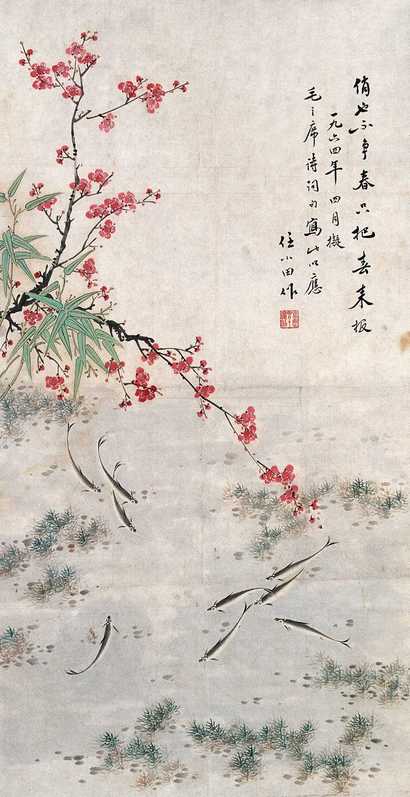 俏也不争春只把春来报
一九六四年四月拟
毛主席诗词句写此以應
任小田作